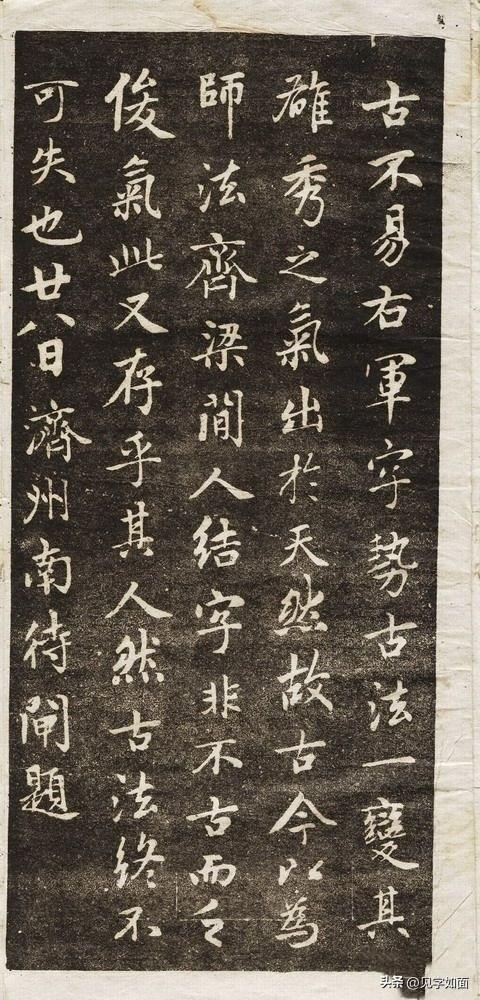 古不易右軍字勢古法一變其
雄秀之氣出於天然故古今以為
師法齊梁間人結字非不古而乏
俊氣此又存乎其人然古法終不
可失也廿八日濟州南待閘題
头条 @见字如面